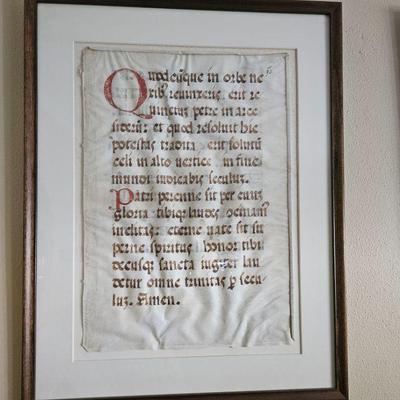 Quodcūque in orbe ne
xib₉ reuinxeris erit re
uinctus petre in arce
siderū: et quod resoluit hic
potestas tradita erit solutū
celi in alto vertice in fine
mundi iudicabis seculuz.
Patri perenne sit per euuz
gloria tibiqz laudes
inclitas: eterne nate sit su
perne spiritus honor tibi
decusqz sancta iugiter lau
detur omne trinitas p secu
luz. Amen.